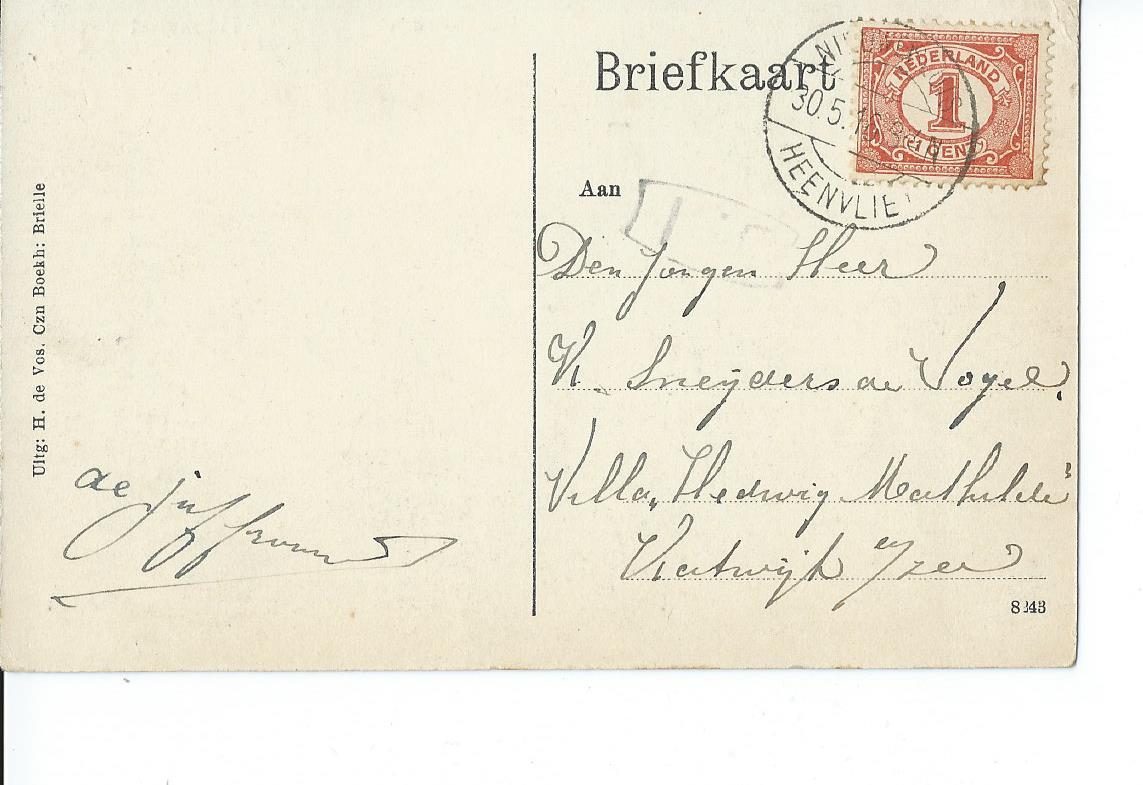 Briefkaart
NEDERLAND
1
1 CENT
30.5.1
HEENVLIET
Aan
Den Jongen Heer
K. Sneyders de Vogel.
Villa „Hedwig Mathilde"
Katwijk a/zee
8243
de juffrouw
Uitg: H. de Vos. Czn Boekh: Brielle